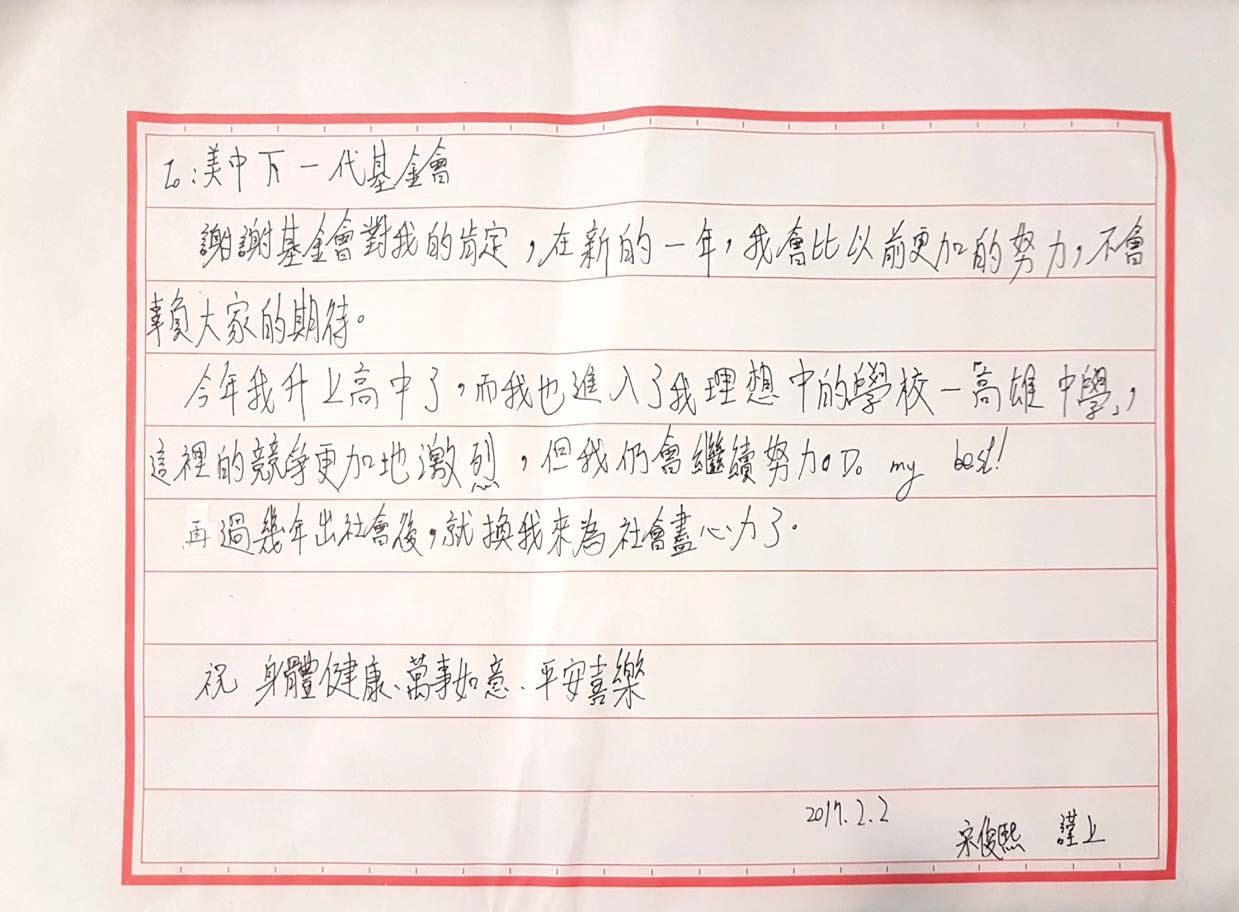 To:美中下一代基金會
謝謝基金會對我的肯定，在新的一年，我會比以前更加的努力，不會
辜負大家的期待。
今年我升上高中了，而我也進入了我理想中的學校－「高雄中學」，
這裡的競爭更加地激烈，但我仍會繼續努力。Do my best!
再過幾年出社會後，就換我來為社會盡心力了。
祝 身體健康、萬事如意、平安喜樂
2017.2.2
宋俊熙 謹上